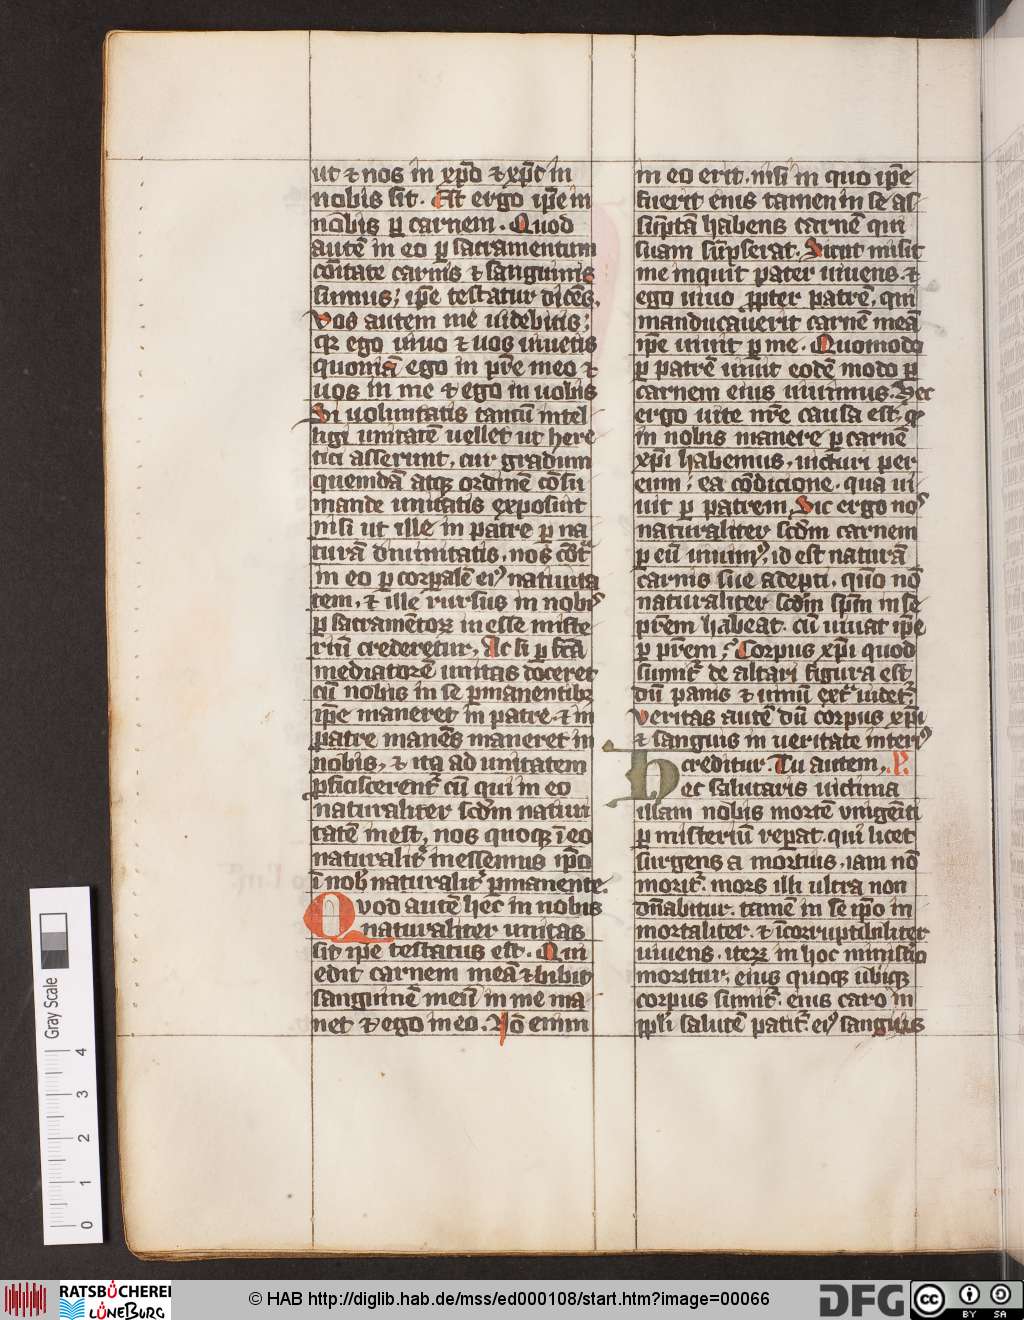 ut ⁊ nos in xp̄o ⁊ xp̄c in
nobis sit. Est ergo ip̄e in
nobis ꝑ carnem. Quod
autē in eo ꝑ sacramentum
cōitate carnis ⁊ sanguinis
simus; ip̄e testatur dicēs.
Vos autem me uidebitis;
qꝛ ego uiuo ⁊ uos uiuetis
quoniā ego in pr̄e meo ⁊
uos in me ⁊ ego in uobis
Si uoluntatis tantū intel
ligi unitatē uellet ut here
tici asserunt, cur gradum
quemdā atqꝫ ordinē cōsu
mande unitatis exposuit
nisi ut ille in patre ꝑ na
turā diuinitatis, nos cōt᷑
in eo ꝑ corꝑalē eiꝰ natiuita
tem, ⁊ ille rursus in nobis
ꝑ sacramētoꝝ inesse miste
riū crederetur, Ac si ꝑ
mediatorē unitas doceret᷑
cū nobis in se ꝑmanentibꝫ
ip̄e maneret in patre ⁊ in
patre manēs maneret in
nobis, ⁊ ita ad unitatem
ꝓficiscerent᷑ cū qui in eo
naturaliter scd̄m natiui
tatē inest, nos quoqꝫ ī eo
naturalit᷑ inessemus ip̄o
ī nob̄ naturalit᷑ ꝑmanente.
Quod autē hec in nobis
naturaliter unitas
sit ip̄e testatus est. Qui
edit carnem meā ⁊ bibit
sanguinē meū in me ma
net ⁊ ego in eo. Nō enim
in eo erit, nisi in quo ip̄e
fuerit eius tamen in se as
sūptā habens carnē qui
suam sūpserat. Sicut misit
me inquit pater uiuens ⁊
ego uiuo ꝓpter patrē, qui
manducauerit carnē meā
ip̄e uiuit ꝑ me. Quomodo
ꝑ patrē uiuit eodē modo ꝑ
carnem eius uiuimus. Hec
ergo uite nr̄e causa est, qꝛ
in nobis manere ꝑ carnē
xp̄i habemus, uicturi per
eum; ea cōdicione, qua ui
uit ꝑ patrem, Sic ergo nos
naturaliter scd̄m carnem
ꝑ eū uiuimꝰ, id est naturā
carnis sue adepti, quō nō
naturaliter scd̄m sp̄m in se
pr̄em habeat, cū uiuat ip̄e
ꝑ pr̄em; Corpus xp̄i quod
sumit᷑ de altari figura est
dū panis ⁊ uinū ext᷑ uidet᷑
veritas autē dū corpus xp̄i
⁊ sanguis in ueritate interiꝰ
creditur. Tu autem. P.
Hec salutaris uictima
illam nobis mortē vnigēiti
ꝑ misteriū reꝑat. qui licet
surgens a mortuis, iam nō
morit᷑, mors illi ultra non
dn̄abitur, tamē in se ip̄o in
mortaliter ⁊ īcorruptibiliter
uiuens, iteꝝ in hoc ministīo
moritur, eius quoqꝫ ubiqꝫ
corpus sumit᷑, eius caro in
ppl̄i salutē patit᷑ eiꝰ sanguis
Gray Scale
0 1 2 3 4
RATSBÜCHEREI
LÜNEBURG
© HAB http://diglib.hab.de/mss/ed000108/start.htm?image=00066
DFG
cc
BY SA